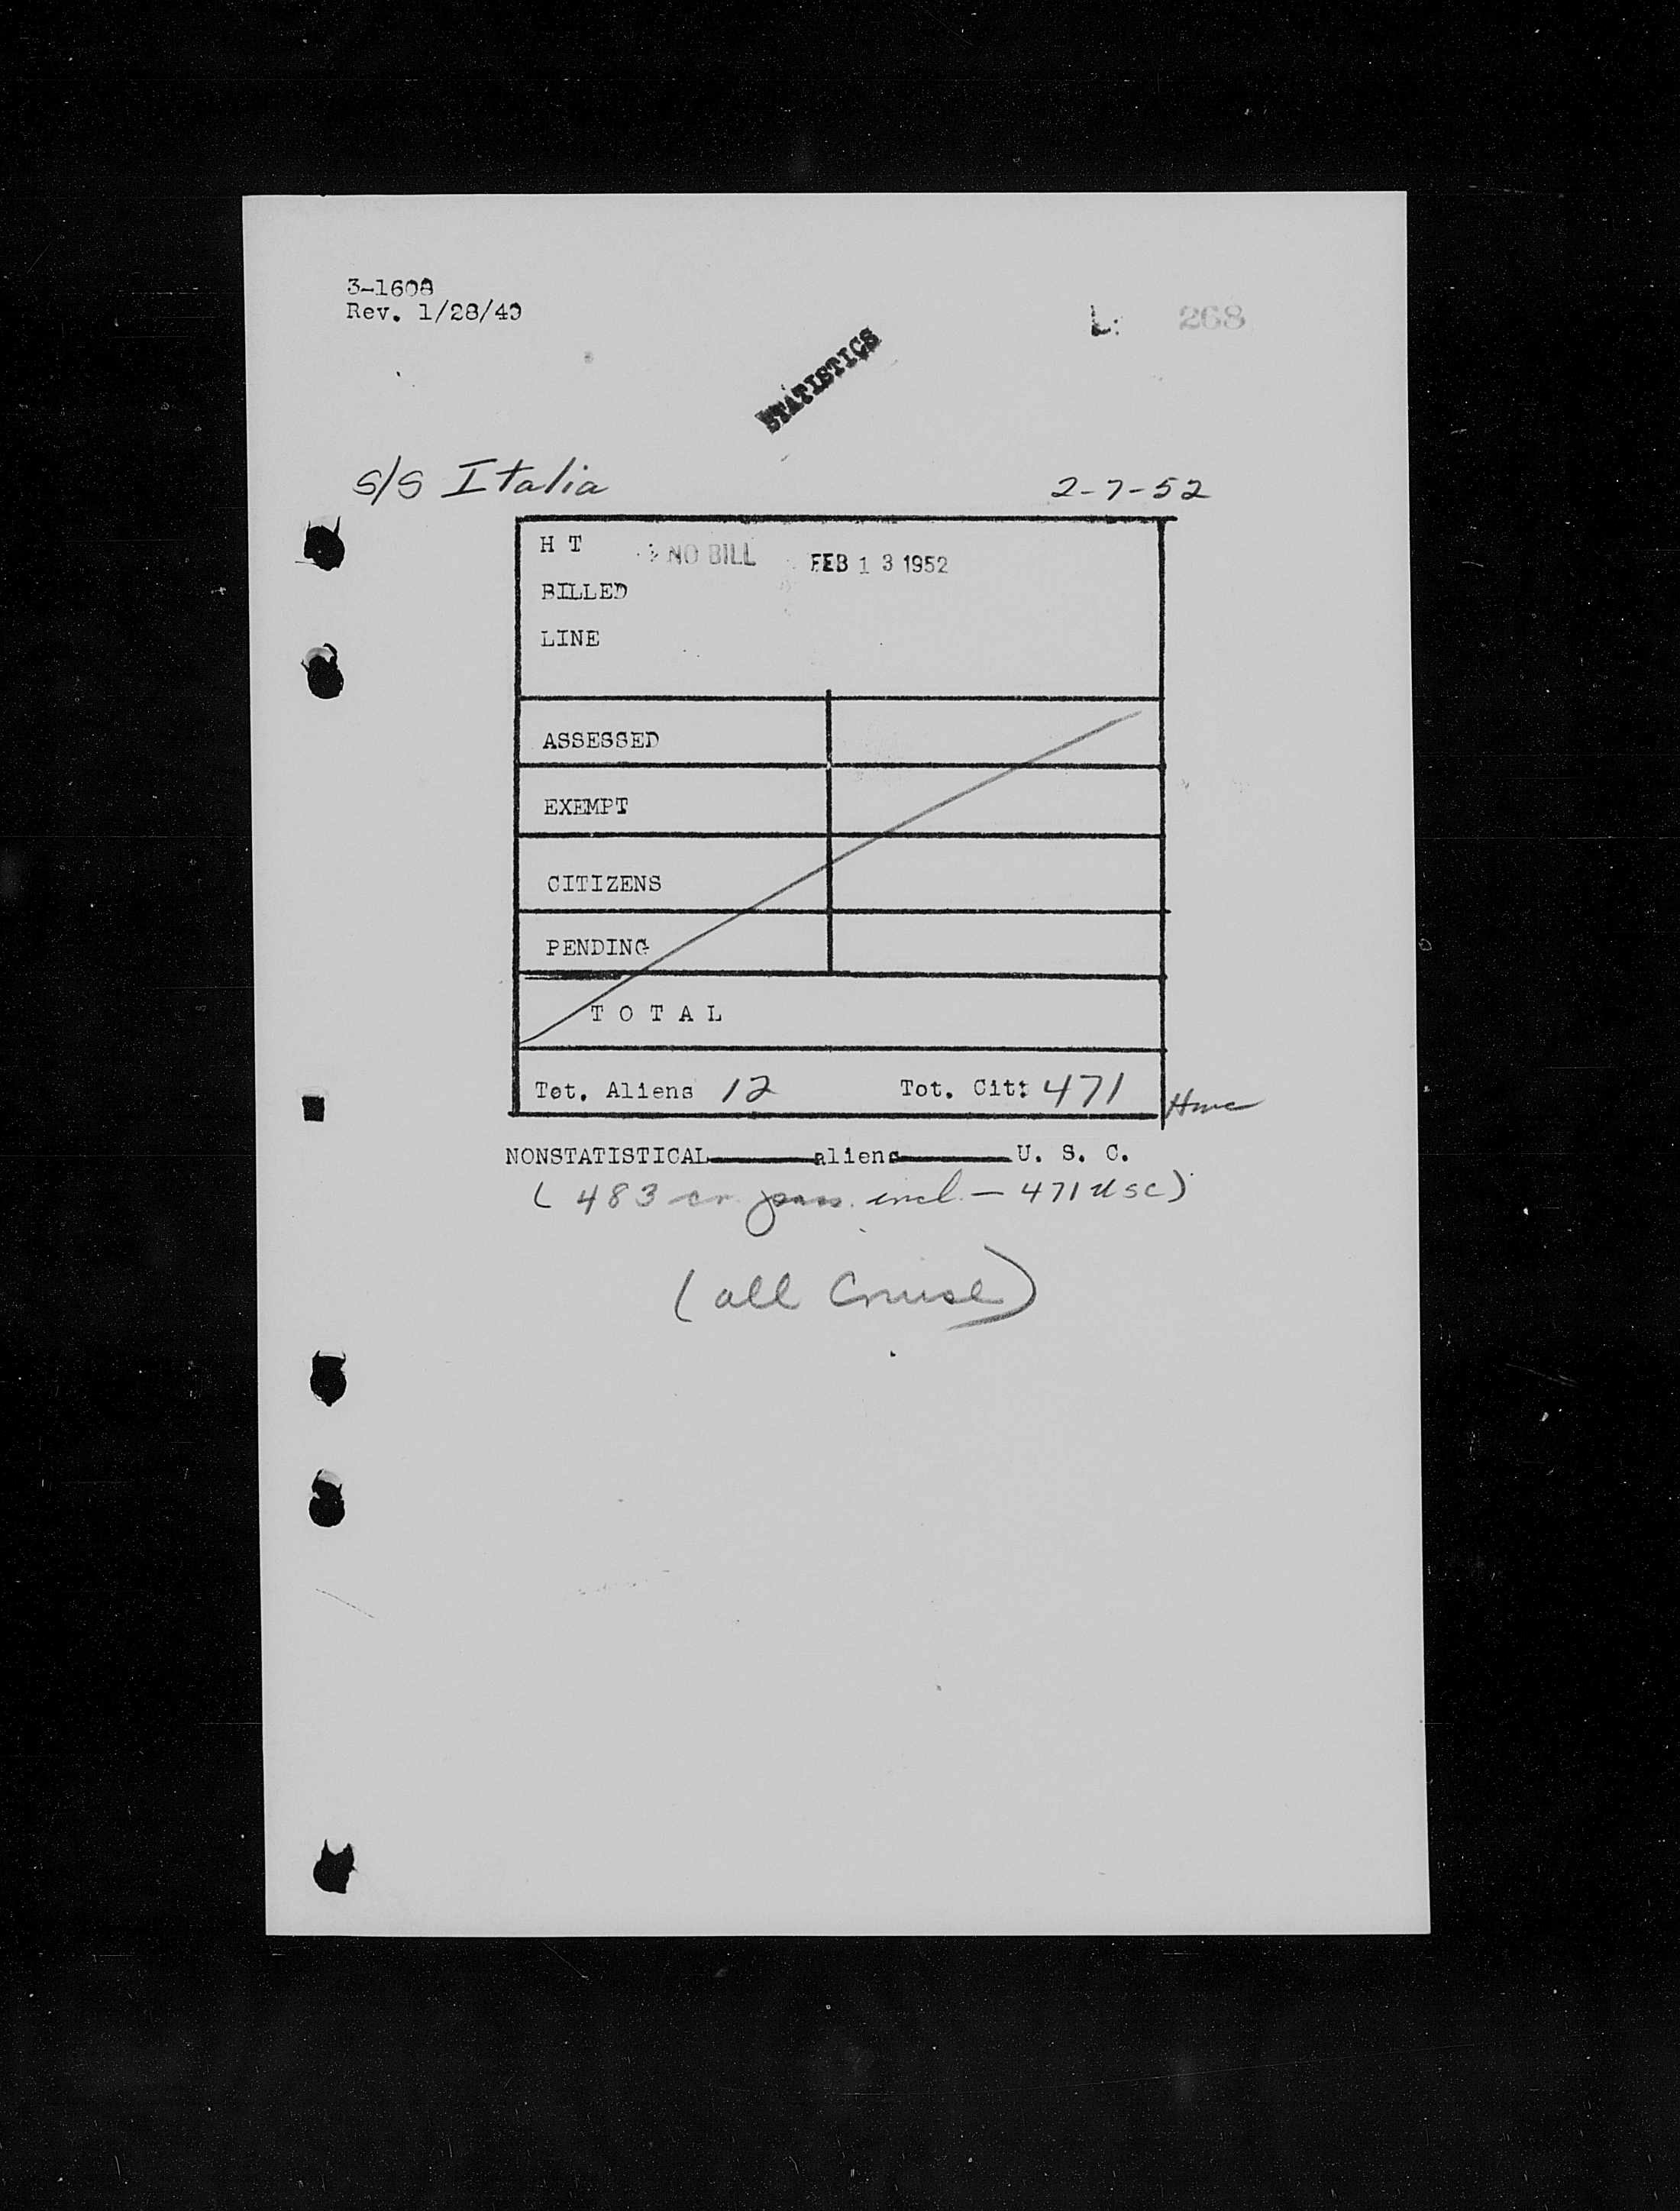 3-1608
Rev. 1/28/49
268
STATISTICS
S/S Italia 2-7-52
H T NO BILL FEB 13 1952
BILLED
LINE
ASSESSED
EXEMPT
CITIZENS
PENDING
T O T A L
Tot. Aliens 12 Tot. Cit: 471
NONSTATISTICAL aliens U. S. C.
( 483 cr. pass. incl. — 471 USC)
(all Cruise)